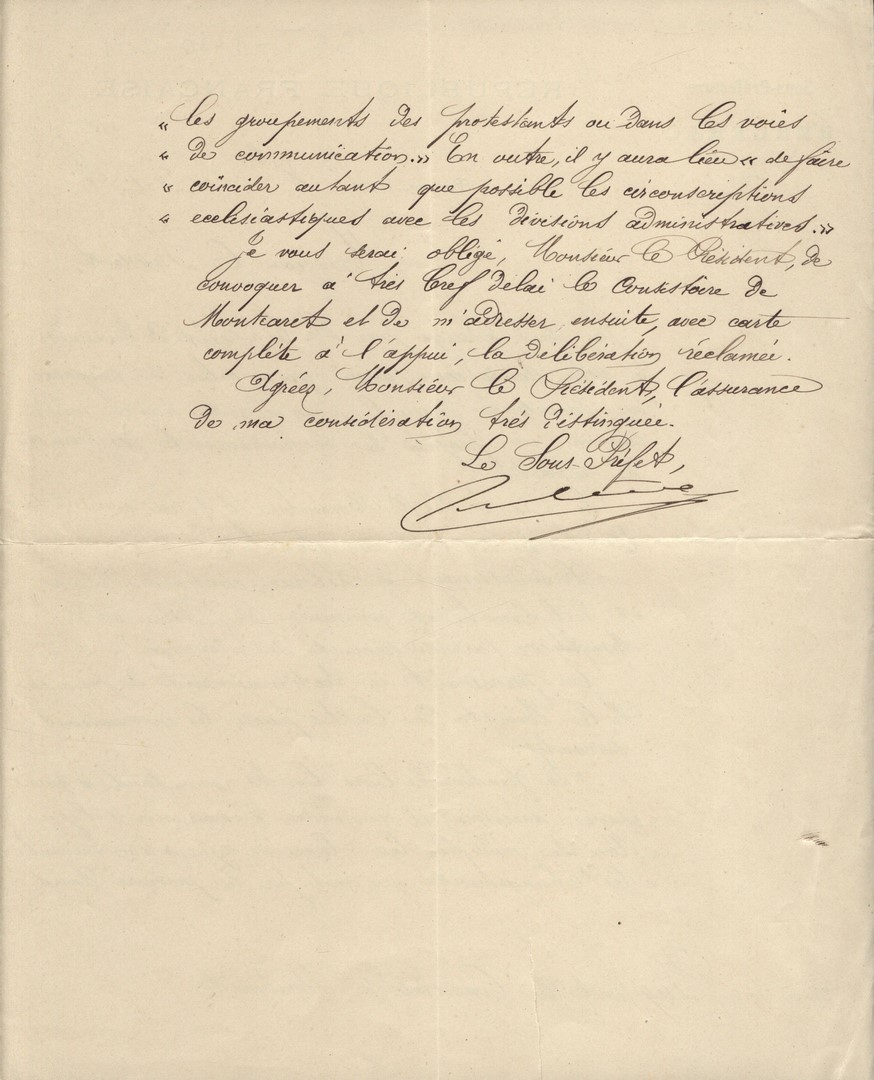 « les groupements des protestants ou dans les voies
« de communication.» En outre, il y aura lieu « de faire
« coïncider autant que possible les circonscriptions
« ecclésiastiques avec les divisions administratives.»
Je vous serai obligé, Monsieur le Président, de
convoquer à très bref délai le Consistoire de
Montcaret et de m'adresser ensuite, avec carte
complète à l'appui, la délibération réclamée.
Agréez, Monsieur le Président, l'assurance
de ma considération très distinguée.
Le Sous-Préfet,